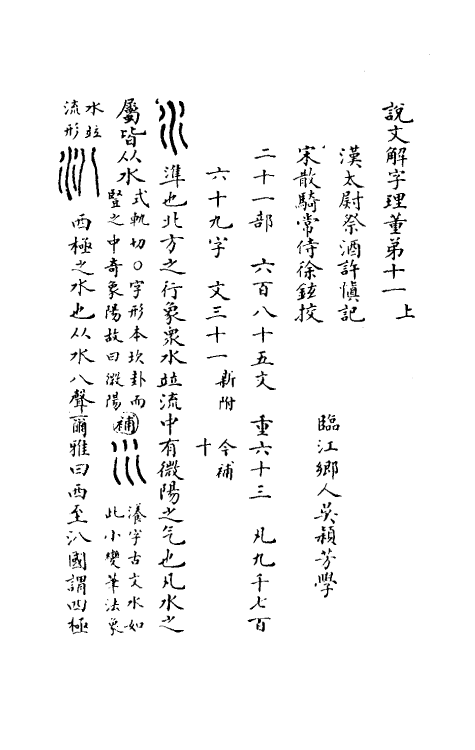 說文解字理董第十一上
漢太尉祭酒許慎記
宋散騎常侍徐鉉挍
臨江鄉人吳穎芳學
二十一部 六百八十五文 重六十三 凡九千七百
六十九字 文三十一新附 今補十
準也北方之行象衆水竝流中有微陽之气也凡水之
屬皆从水式軌切○字形本坎卦而豎之中奇象陽故曰微陽 補 瀁字古文水如此小變筆法象
水竝流形 西極之水也从水八聲爾雅曰西至汃國謂四極